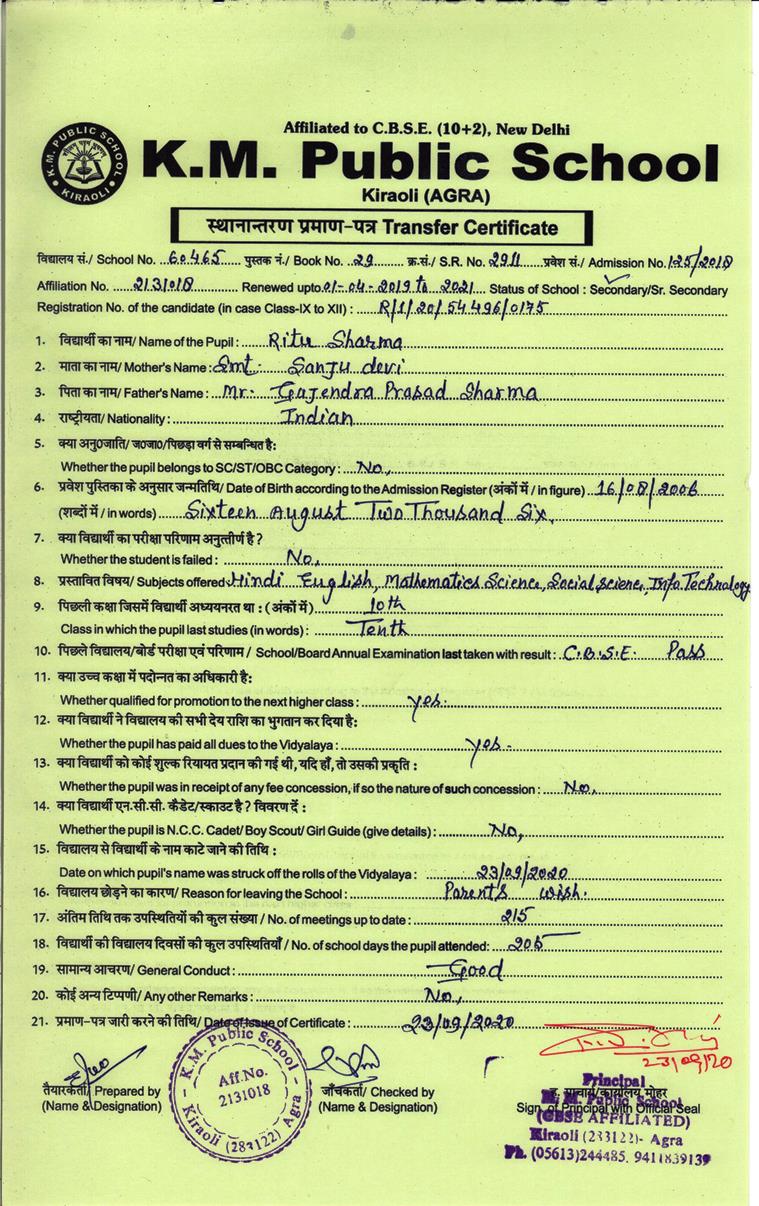 K.M. PUBLIC SCHOOL
KIRAOLI
Affiliated to C.B.S.E. (10+2), New Delhi
K.M. Public School
Kiraoli (AGRA)
स्थानान्तरण प्रमाण-पत्र Transfer Certificate
विद्यालय सं./ School No. 60465 पुस्तक नं./ Book No. 29 क्र.सं./ S.R. No. 2911 प्रवेश सं./ Admission No. 125/2018
Affiliation No. 2131018 Renewed upto 01-04-2019 to 2021 Status of School : Secondary/Sr. Secondary
Registration No. of the candidate (in case Class-IX to XII) : R/1/20/54496/0175
1. विद्यार्थी का नाम/ Name of the Pupil : Ritu Sharma
2. माता का नाम/ Mother's Name : Smt. Sanju devi
3. पिता का नाम/ Father's Name : Mr. Gajendra Prasad Sharma
4. राष्ट्रीयता/ Nationality : Indian
5. क्या अनु0जाति/ ज0जा0/पिछड़ा वर्ग से सम्बन्धित है:
Whether the pupil belongs to SC/ST/OBC Category : No,
6. प्रवेश पुस्तिका के अनुसार जन्मतिथि/ Date of Birth according to the Admission Register (अंकों में / in figure) 16/08/2006
(शब्दों में / in words) Sixteen August Two Thousand Six,
7. क्या विद्यार्थी का परीक्षा परिणाम अनुत्तीर्ण है ?
Whether the student is failed : No,
8. प्रस्तावित विषय/ Subjects offered Hindi English, Mathematics Science, Social science, Info Technology
9. पिछली कक्षा जिसमें विद्यार्थी अध्ययनरत था : (अंकों में) 10th
Class in which the pupil last studies (in words) : Tenth
10. पिछले विद्यालय/बोर्ड परीक्षा एवं परिणाम / School/Board Annual Examination last taken with result : C.B.S.E. Pass
11. क्या उच्च कक्षा में पदोन्नत का अधिकारी है:
Whether qualified for promotion to the next higher class : yes.
12. क्या विद्यार्थी ने विद्यालय की सभी देय राशि का भुगतान कर दिया है:
Whether the pupil has paid all dues to the Vidyalaya : yes.
13. क्या विद्यार्थी को कोई शुल्क रियायत प्रदान की गई थी, यदि हाँ, तो उसकी प्रकृति :
Whether the pupil was in receipt of any fee concession, if so the nature of such concession : No,
14. क्या विद्यार्थी एन.सी.सी. कैडेट/स्काउट है ? विवरण दें :
Whether the pupil is N.C.C. Cadet/ Boy Scout/ Girl Guide (give details) : No,
15. विद्यालय से विद्यार्थी के नाम काटे जाने की तिथि :
Date on which pupil's name was struck off the rolls of the Vidyalaya : 23/09/2020
16. विद्यालय छोड़ने का कारण/ Reason for leaving the School : Parents wish.
17. अंतिम तिथि तक उपस्थितियों की कुल संख्या / No. of meetings up to date : 215
18. विद्यार्थी की विद्यालय दिवसों की कुल उपस्थितियाँ / No. of school days the pupil attended: 205
19. सामान्य आचरण/ General Conduct : Good
20. कोई अन्य टिप्पणी/ Any other Remarks : No,
21. प्रमाण-पत्र जारी करने की तिथि/ Date of Issue of Certificate : 23/09/2020
23/09/20
तैयारकर्ता/ Prepared by
(Name & Designation)
K.M. Public School
Aff.No.
2131018
Kiraoli (283122) Agra
जाँचकर्ता/ Checked by
(Name & Designation)
ह. प्राचार्य/कार्यालय मोहर
Sign. of Principal with Official Seal
Principal
K. M. Public School
(CBSE AFFILIATED)
Kiraoli (283122)- Agra
Ph. (05613)244485, 9411839139